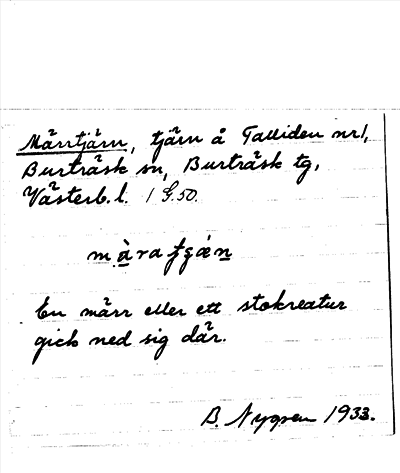 Märrtjärn, tjärn å Talliden nr 1,
Burträsk sn, Burträsk tg,
Västerb. l. 1 G.50.
En märr eller ett stokreatur
gick ned sig där.
B. Nygren 1933.